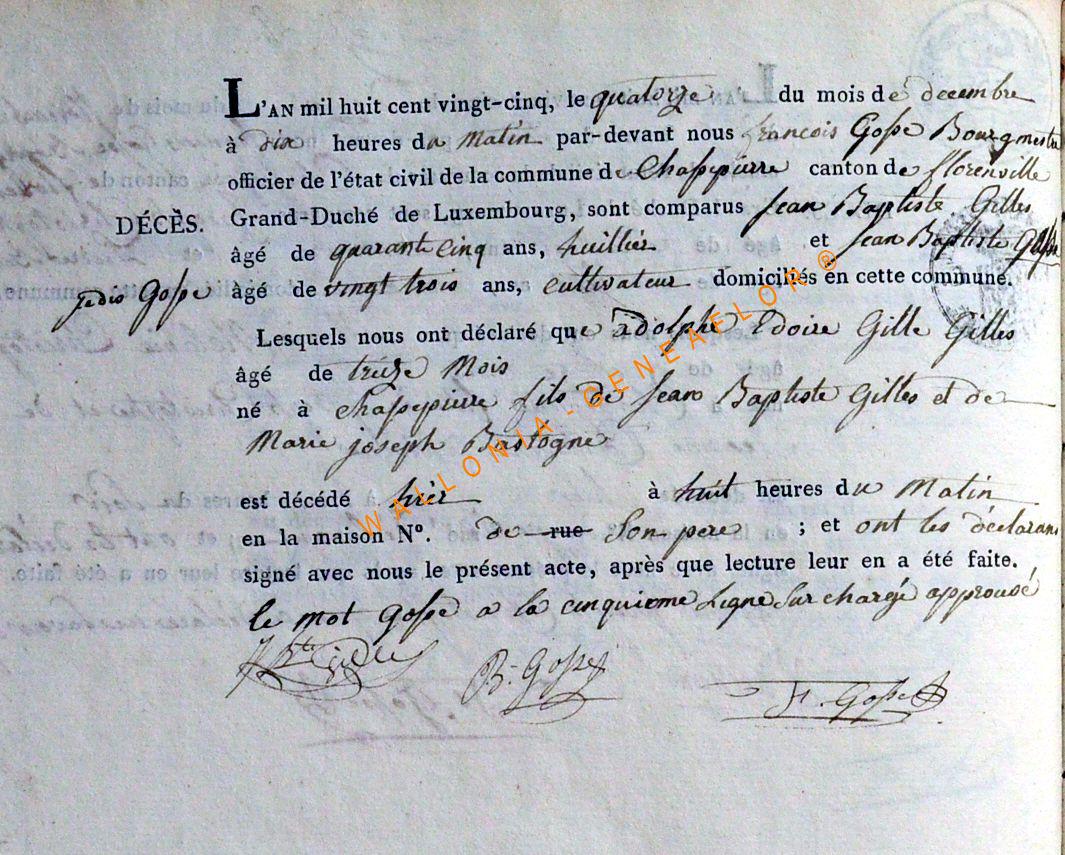 L'AN mil huit cent vingt-cinq, le quatorze du mois de decembre
à dix heures du Matin par-devant nous francois Gosse Bourgmestre
officier de l'état civil de la commune de Chassepierre canton de florenville
DÉCÈS. Grand-Duché de Luxembourg, sont comparus Jean Baptiste Gilles
âgé de quarant cinq ans, huillier et Jean Baptiste Gosse
je dis Gosse âgé de vingt trois ans, cultivateur domiciliés en cette commune.
Lesquels nous ont déclaré que adolphe Edoire Gille Gilles
âgé de treize Mois
né à Chassepierre fils de Jean Baptiste Gilles et de
Marie joseph Bastogne
est décédé hier à huit heures du Matin
en la maison N°. de rue Son pere ; et ont les déclarans
signé avec nous le présent acte, après que lecture leur en a été faite.
le mot Gosse a la cinquieme Ligne Surchargé approuvé
B. Gosse
F. Gosse
WALLONIA-GENEAELOR®